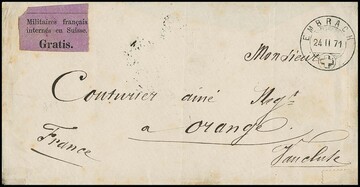 Militaires français
internés en Suisse.
Gratis.
EMBRACH
24 II 71
Monsieur
Couturier ainé Neg.t
a orange.
France
Vaucluse